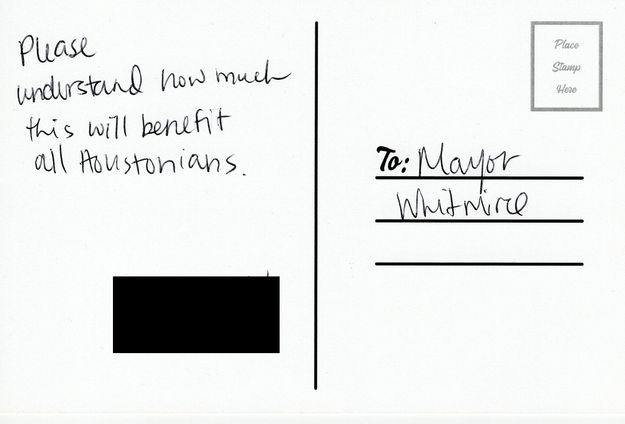 Please
understand how much
this will benefit
all Houstonians.
Place
Stamp
Here
To: Mayor
Whitmire